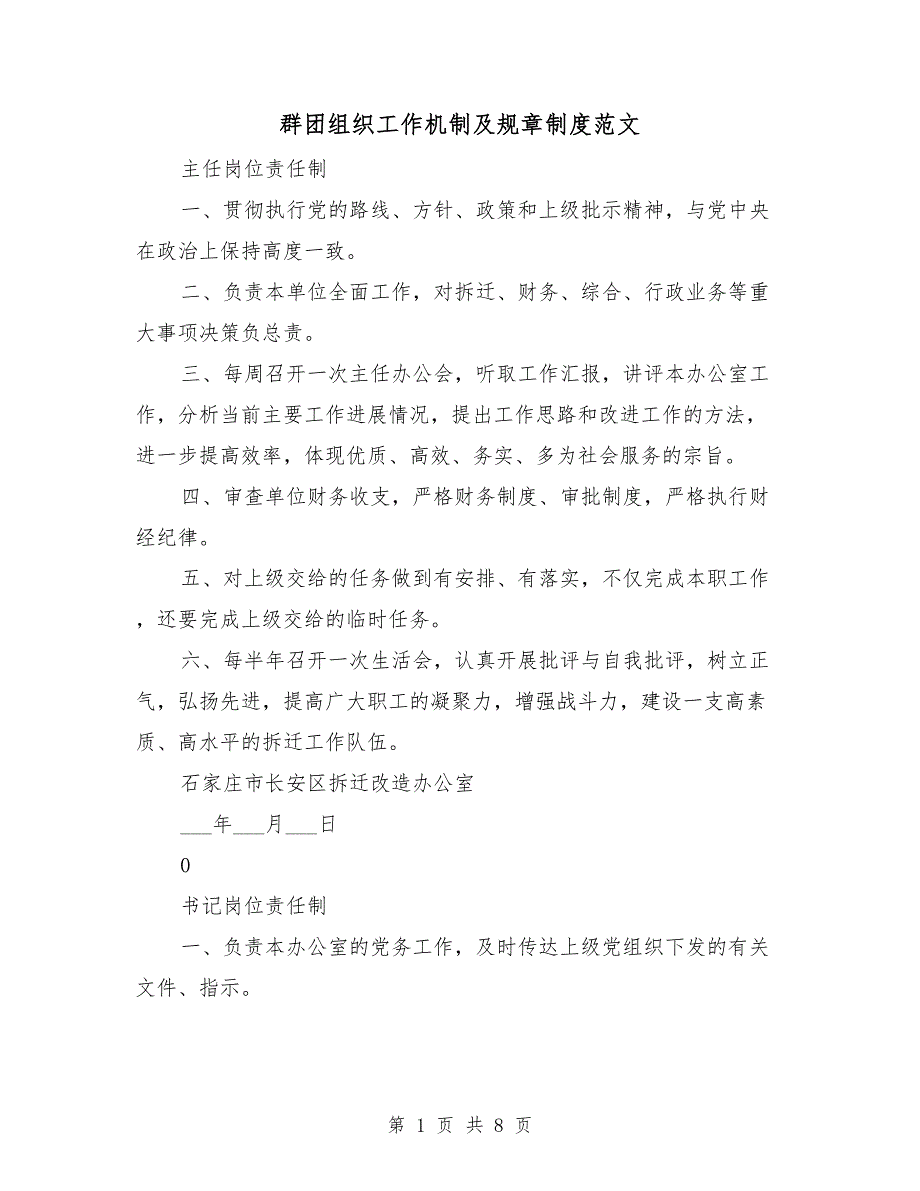 群团组织工作机制及规章制度范文
主任岗位责任制
一、贯彻执行党的路线、方针、政策和上级批示精神，与党中央
在政治上保持高度一致。
二、负责本单位全面工作，对拆迁、财务、综合、行政业务等重
大事项决策负总责。
三、每周召开一次主任办公会，听取工作汇报，讲评本办公室工
作，分析当前主要工作进展情况，提出工作思路和改进工作的方法，
进一步提高效率，体现优质、高效、务实、多为社会服务的宗旨。
四、审查单位财务收支，严格财务制度、审批制度，严格执行财
经纪律。
五、对上级交给的任务做到有安排、有落实，不仅完成本职工作
，还要完成上级交给的临时任务。
六、每半年召开一次生活会，认真开展批评与自我批评，树立正
气，弘扬先进，提高广大职工的凝聚力，增强战斗力，建设一支高素
质、高水平的拆迁工作队伍。
石家庄市长安区拆迁改造办公室
___年___月___日
0
书记岗位责任制
一、负责本办公室的党务工作，及时传达上级党组织下发的有关
文件、指示。
第 1 页 共 8 页